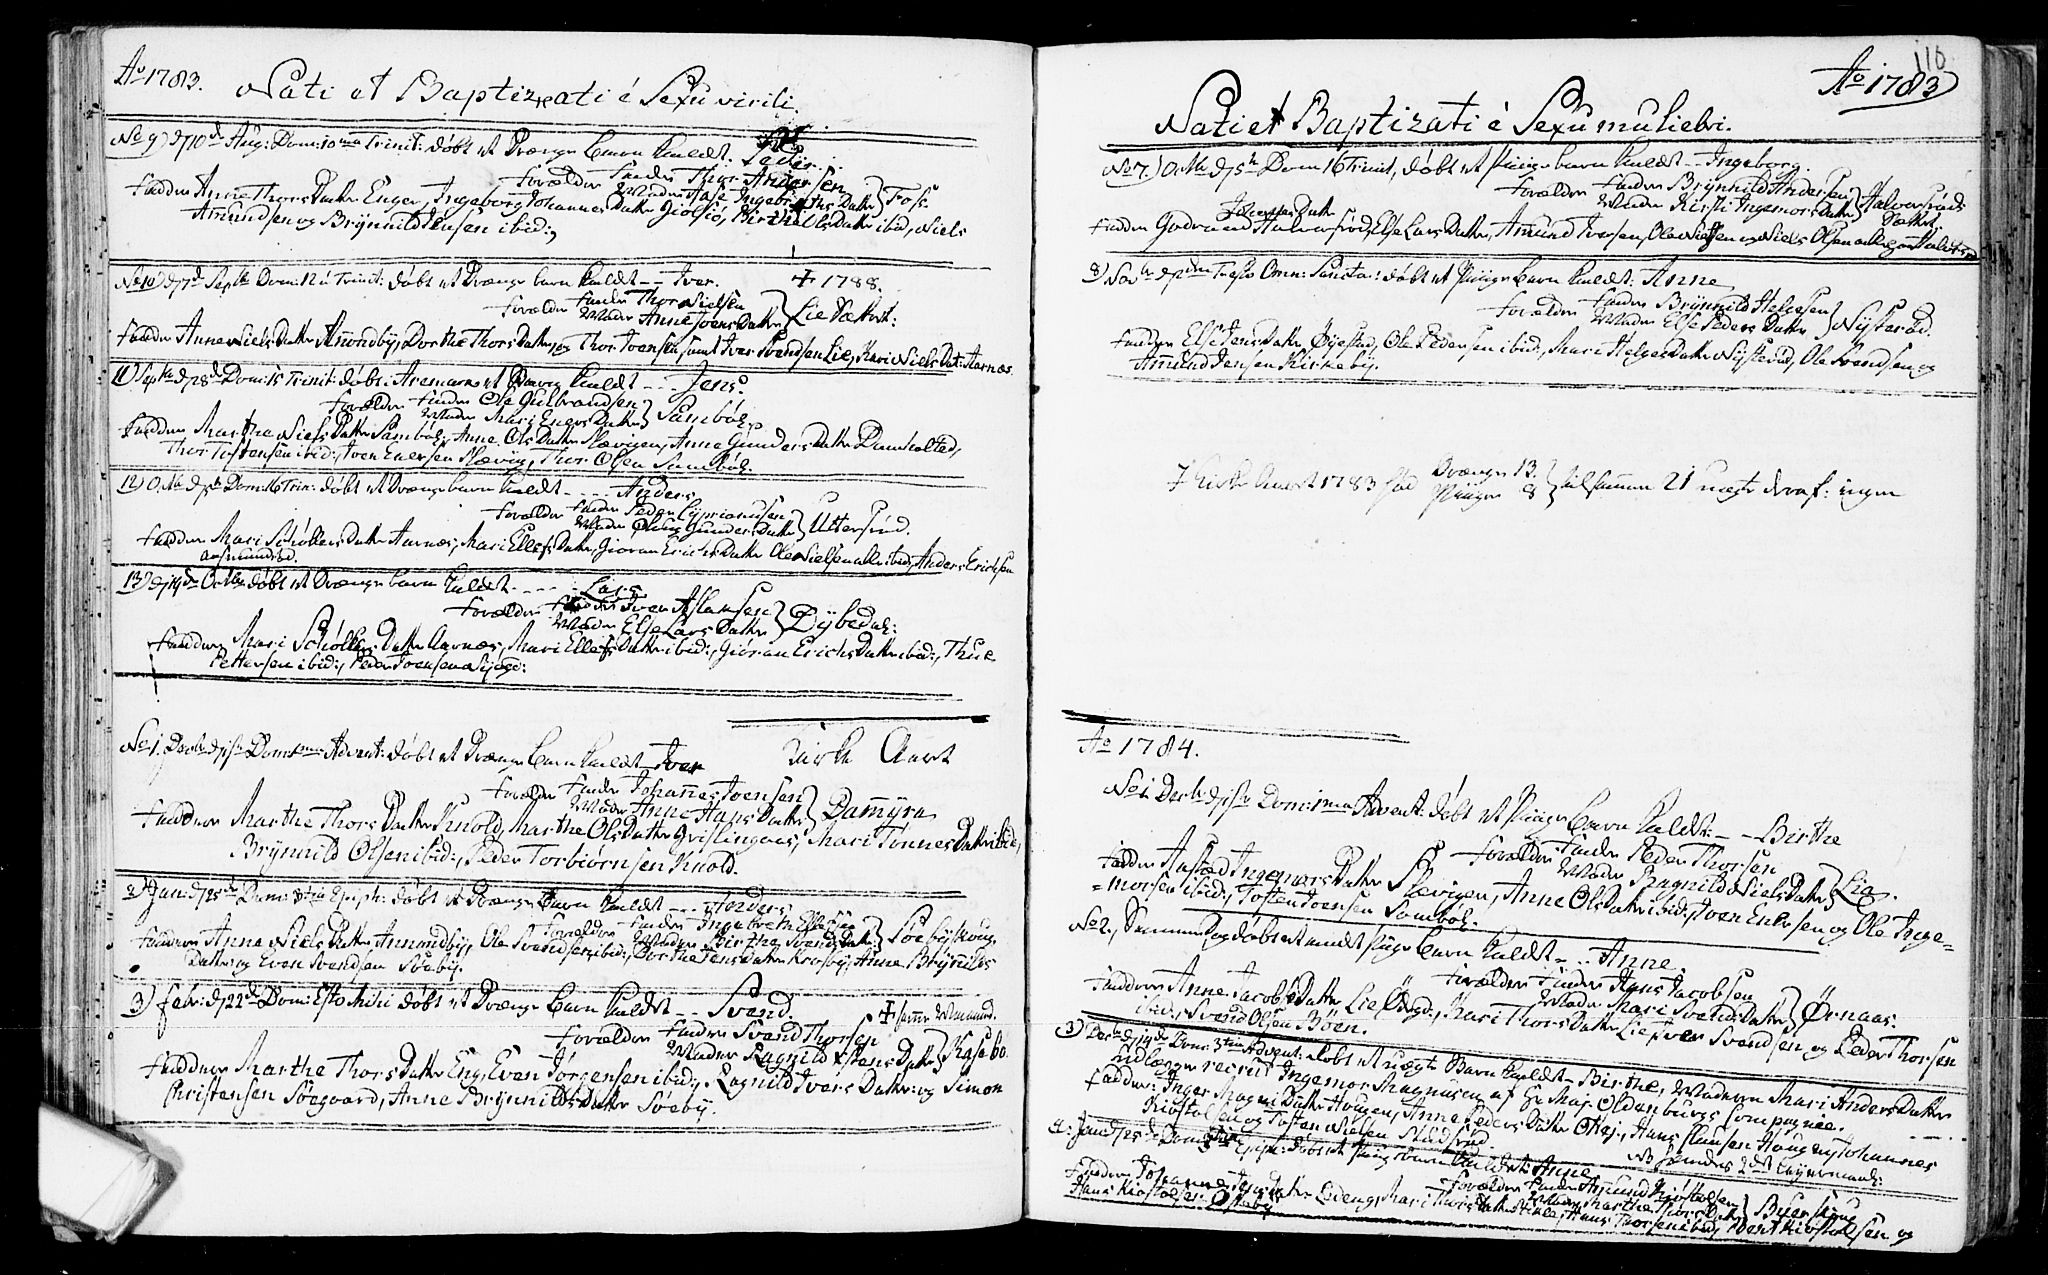 Ao 1783.
Nati et Baptizati é Sexu virili.
No 9) d 10de Aug: Dom: 10ma Trinit: døbt et Drænge barn kaldt. Peder..
Forældre Fader Thor Andersen
Moder Aase Ingebrigths Datter } Foss
Faddere Anne Thors Datter Enger, Ingeborg Johannes Datter Giølsiø, Birthe Ols Datter ibid, Niels
Amundsen og Brÿnnild Jensen ibid:,
No 10) d 7de Septb: Dom: 12 á Trinit: døbt et Drænge barn kaldt -- Iver. + 1788.
Forældre Fader Thor Nielsen
Moder Anne Joens Datter } Lie
Faddere Anne Niels Datter Amondbÿ, Dorthe Thors Datter, og Thor Joensen samt Iver Svendsen Lie, Kari Niels Dat: Aarnæs.
11) Septb: d 28de Dom: 15 Trinit: døbt i Aremarch et Dreng kaldt --- Jens.
Forældre Fader Ole Gulbrandsen
Moder Mari Eners Datter } Sambøl,
Faddere Marthe Niels Datter Sambøl, Anne Ols Datter Slævigen, Anne Gunders Datter Damholtet,
Thor Tostensen ibid:, Joen Enersen Slævig, Thor Olsen Sambøl.
12) Octb: d 5te Dom: 16 Trin: døbt et Drænge barn kaldt ---- Anders
Forældre Fader Peder Ciprianusen
Moder Gunders Datter } Uttersrød.
Faddere Mari Schøllers Datter Aarnæs, Mari Ellefs Datter, Giøran Erichs Datter Ole Nielsen alle ibid, Anders Erichsen
13) d 19de Octb: døbt et Drænge barn kaldt ---- Lars
Forældre Fader Iver Aslachsen
Moder Else Lars Datter } Dÿbedal:
Faddere Mari Schøllers Datter Aarnæs, Mari Ellefs Datter ibid:, Giøran Erichs Datter ibid:, Thue
Pettersen ibid:, Peder Joensen
Kirke Aaret
No 1. Decbr d 1ste Dom 1ma Advent: døbt et Drænge barn kaldt Iver
Forældre Fader Johannes Joensen
Moder Anne Hans Datter } Damÿra
Faddere Marthe Thors Datter Knold, Marthe Ols Datter Grislingaas, Mari Tønnes Datter ibid,
Brÿnnild Olsen ibid:, Peder Torbiørnsen Knold.
2) Jan: d 25de Dom: 3tia Epiph: døbt et Drænge Barn kaldt --- Anders
Forældre Fader Ingebreth Ellefsen
Moder Birthe Svends Datter } Søebÿskoug.
Faddere Anne Niels Datter Amondbÿ, Ole Svendsen ibid:, Dorthe Jens Datter Krosbÿ, Anne Brÿnnilds
Datter og Even Svendsen Søebÿ.
3) Febr: d 22de Dom: Esto Mihi døbt et Drænge Barn kaldt -- Svend. + samme Maaned.
Forældre Fader Svend Thorsen
Moder Ragnild Datter } Kasebo.
Faddere Marthe Thors Datter Eng, Even Jørgensen ibid:, Ragnild Ivers Datter: og Simon
Christensen Søegaard, Anne Brÿnnilds Datter Søebÿ.
110
Ao 1783
Nati et Baptizati é Sexu muliebri.
No 7.) Octb: d 5te Dom 16 Trinit, døbt et Pige barn kaldt -- Ingeborg.
Forældre Fader Brÿnnild Andersen
Moder Kirsti Ingemors Datter } Halvorsrøds
Johannes Datter
Faddere Gudru Halvorsrød, Else Lars Datter, Amund Iversen, Ole Nielsen og Niels Olsen alle
8) Novb: d Festo Omn: Sanctor: døbt et Pige barn kaldt: Anne
Forældre Fader Brÿnnild Helgesen
Moder Else Peders Datter } Nÿsterød.
Faddere Else Jens Datter Øÿestad, Ole Pedersen ibid:, Mari Helges Datter Nÿsterød, Ole Svendsen og
Amund Jensen Kirkebÿ.
I Kirke Aaret 1783 fød Drænge 13.
Piiger 8 } tilsammen 21 uægte deraf: ingen
Ao 1784.
No 1. Decbr d 1ste Dom: 1ma Advent: døbt et Piige Barn kaldt: -- Birthe
Forældre Fader Peder Thorsen
Moder Ragnild Niels Datter } Lie.
Faddere Anstæd Ingemors Datter Slævigen, Anne Ols Datter ibid:, Joen Enersen og Ole Inge=
=morsen ibid:, Tosten Joensen Sambøl.
No 2., Samme Dag døbt et andet Piige barn kaldt -- Anne
Forældre Fader Hans Jacobsen
Moder Mari Svends Datter } Ørnaas.
Faddere Anne Jacobs Datter Lie Ødegd:, Kari Thors Datter Lie, Iver Svendsen, og Peder Thorsen
ibid:, Svend Olsen Bøen.
3) Decbr d 14de Dom: 3tia Advent: døbt et uægte Barn kaldt - Birthe, Moderen Mari Anders Datter
Udlægger recrut Ingemor Magnusen af Hr Maj. Oldenburgs Compagnie.
Faddere: Inger Magni Datter Hougen, Anne Peders Datter Otkej., Hans Clausen Hougen, Johannes
Kiøstolsen og Tosten Nielsen Studsrud. NB
4: Jan: d 25de Dom: 3tia Epiph: døbt et Piige barn kaldt: Anne
Forældre Fader Amund Kiøstolsen
Moder Marthe Thors Datter } Buerskoug
Faddere Johanne Jens Datter Lideng, Mari Thors Datter, Hans Thorsen ibid, Bent Kiøstolsen og
Hans Kiøstolsen Østebÿ